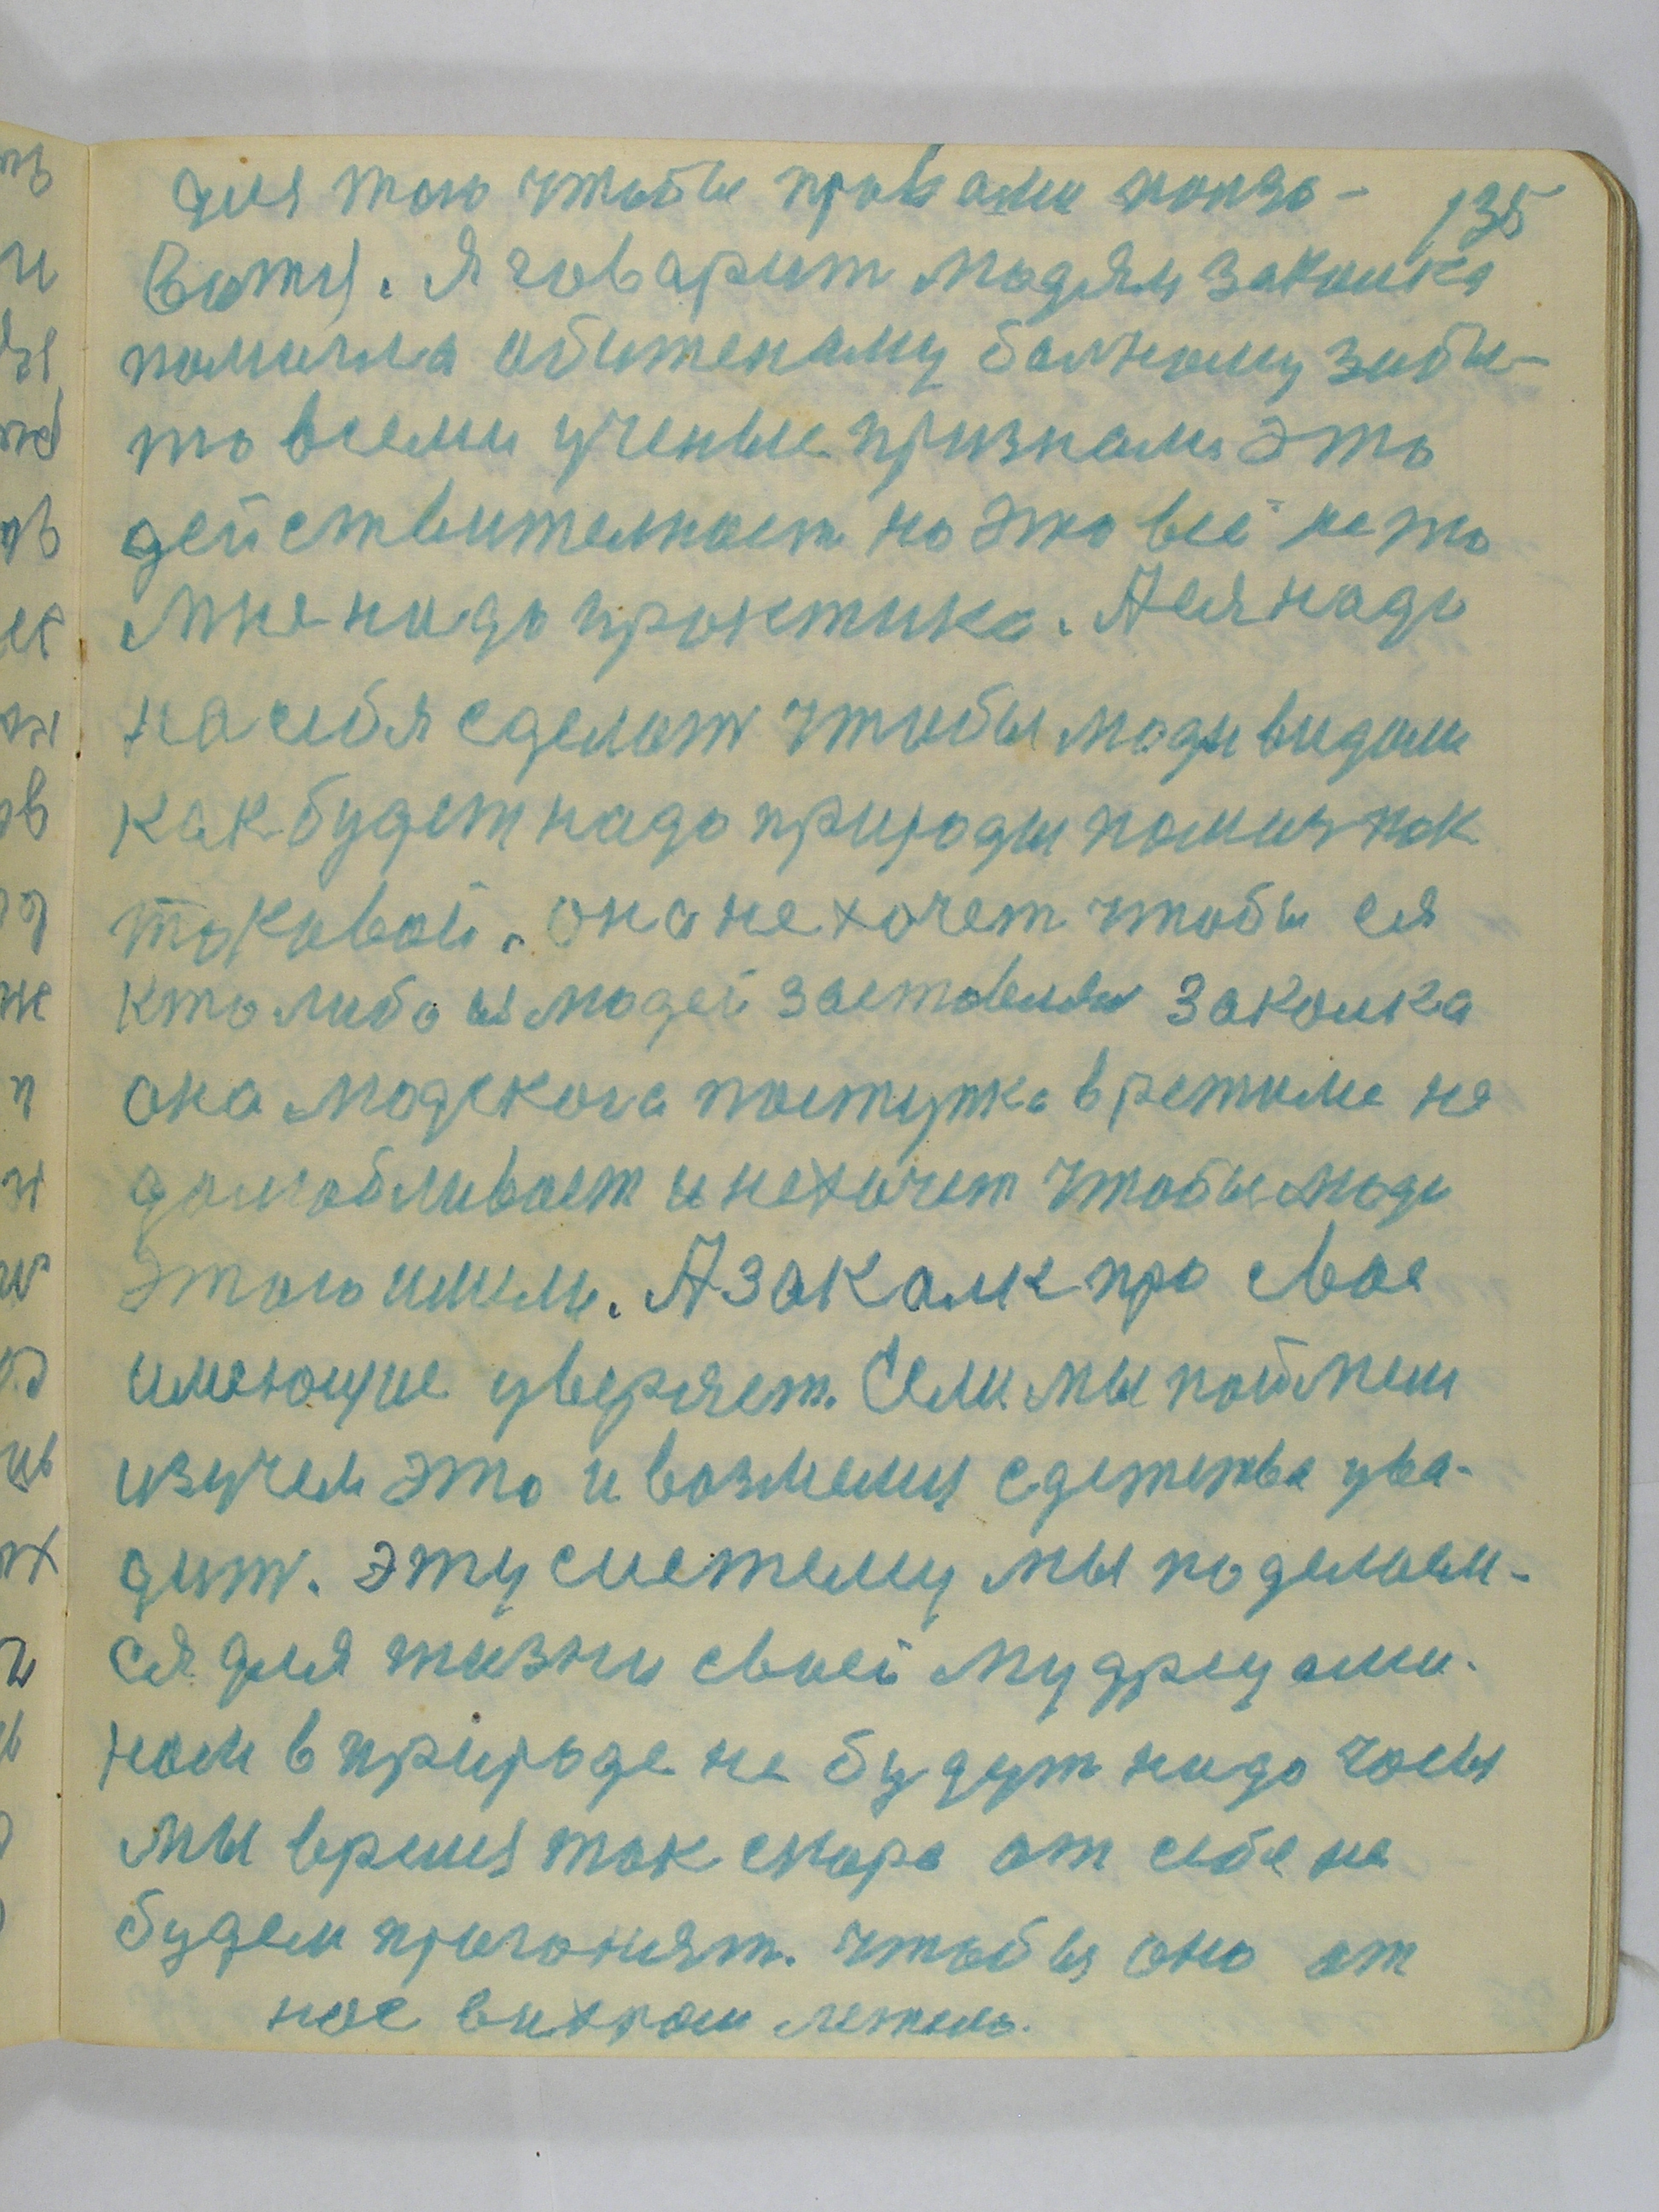 135
для того чтобы правами ползо-
ватся. Я говарит людям закалка
помогла обиженаму болному забы-
то всеми ученые признали это
действителност но это всё не то
мне надо практика. А ея надо
на себя сделат чтобы люди видали
как будет надо природы помимо как
таковой. она не хочет чтобы ея
кто либо из людей заставлял закалка
она людскога поступка в режиме не
долюбливает и не хочет чтобы люди
этого имели. А закалка про свое
имеющие уверяет. Если мы поймем
изучем это и возмемся с детства ува-
дит. эту систему мы поделаем-
ся для жизни своей мудрецами.
нам в природе не будут надо часы
мы время так скоро от себя не
будем прогонят. чтобы оно от
нас вихром летело.